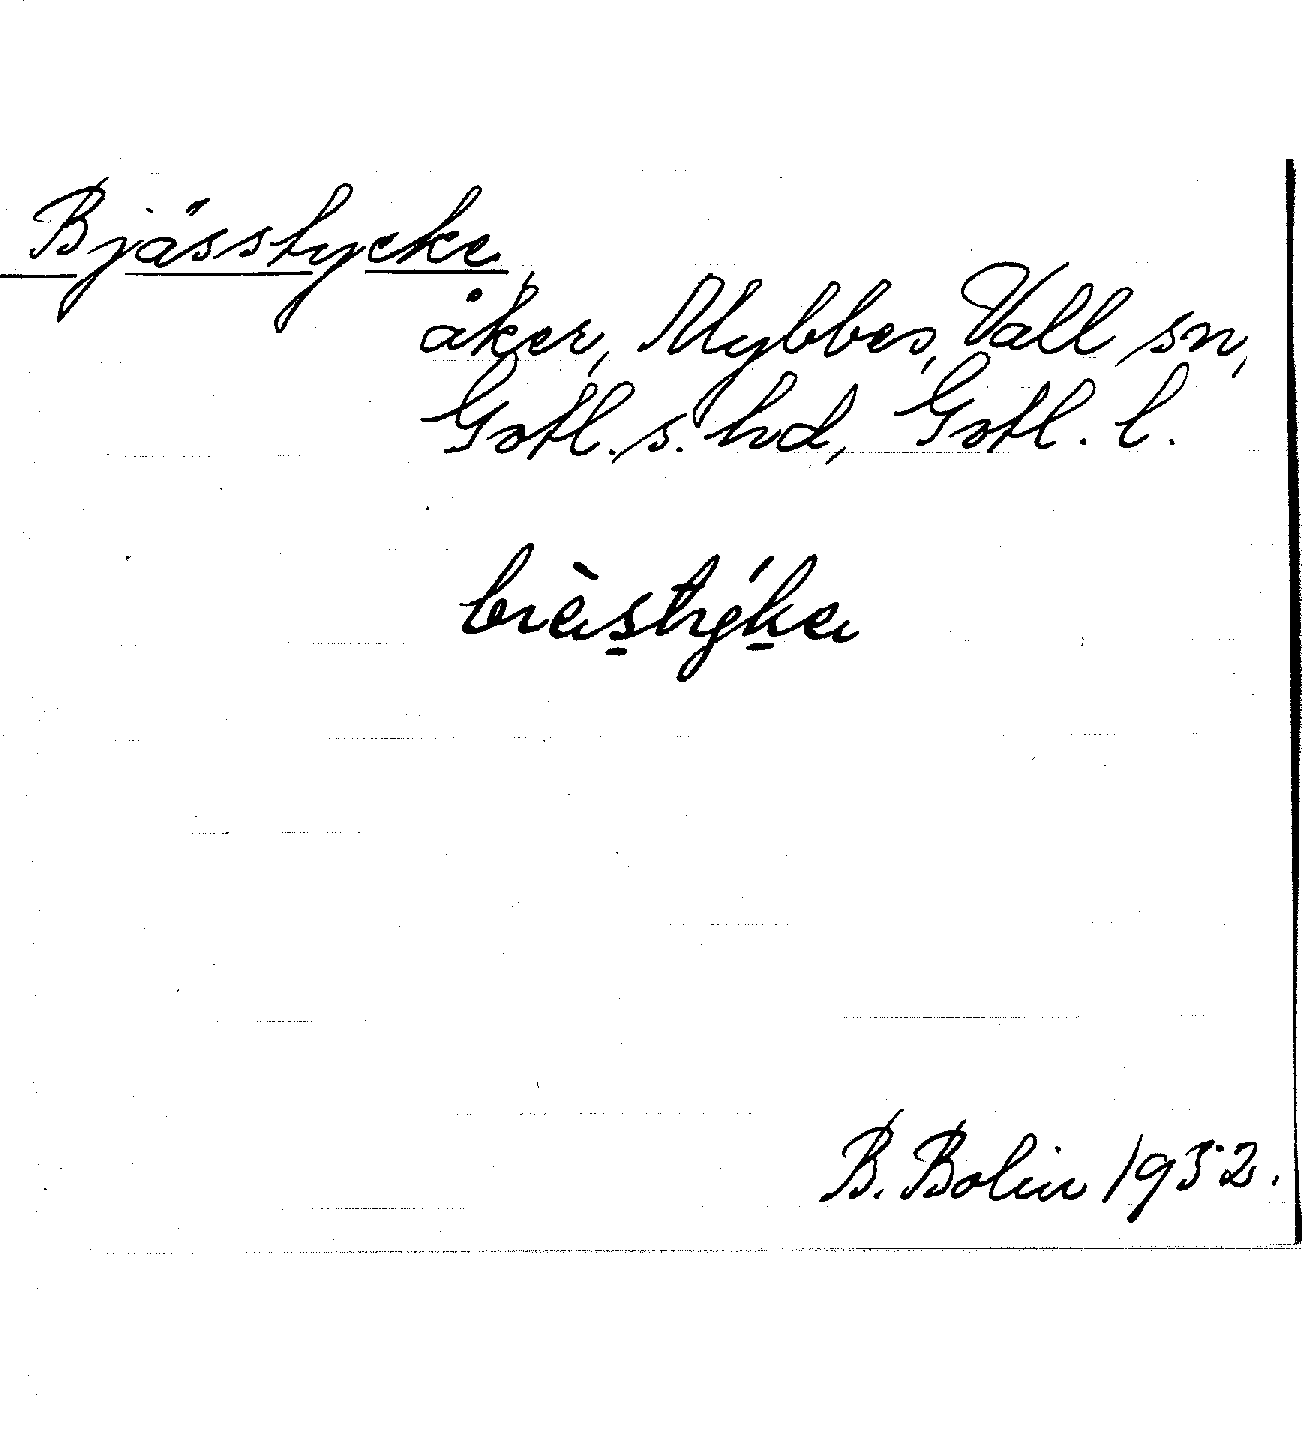 Bjässtycke,
åker, Mybbes, Vall sn,
Gotl. s. hd, Gotl. l.
biàstýka
B. Bolin 1932.